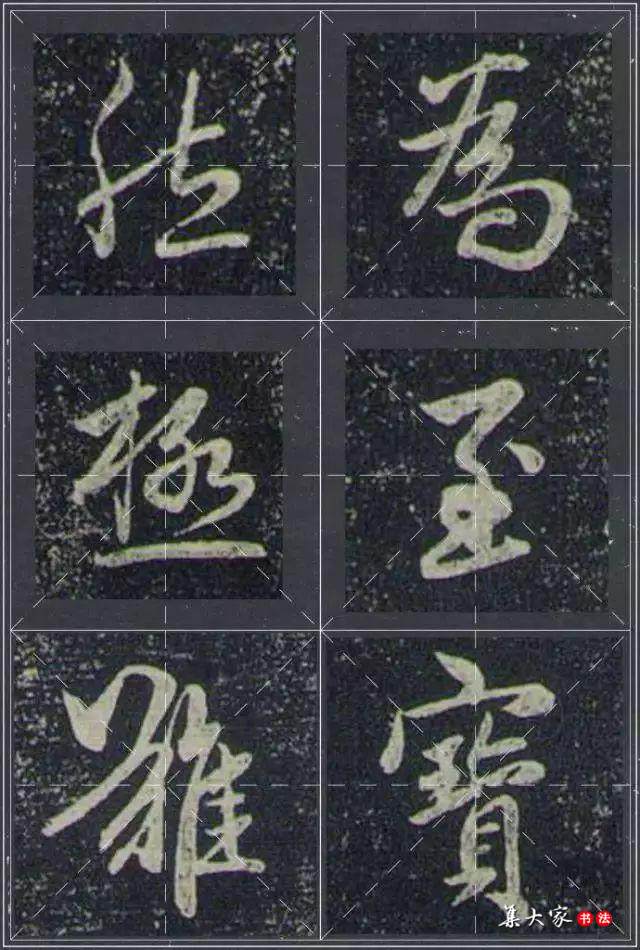 為至寶
極難
集大家书法